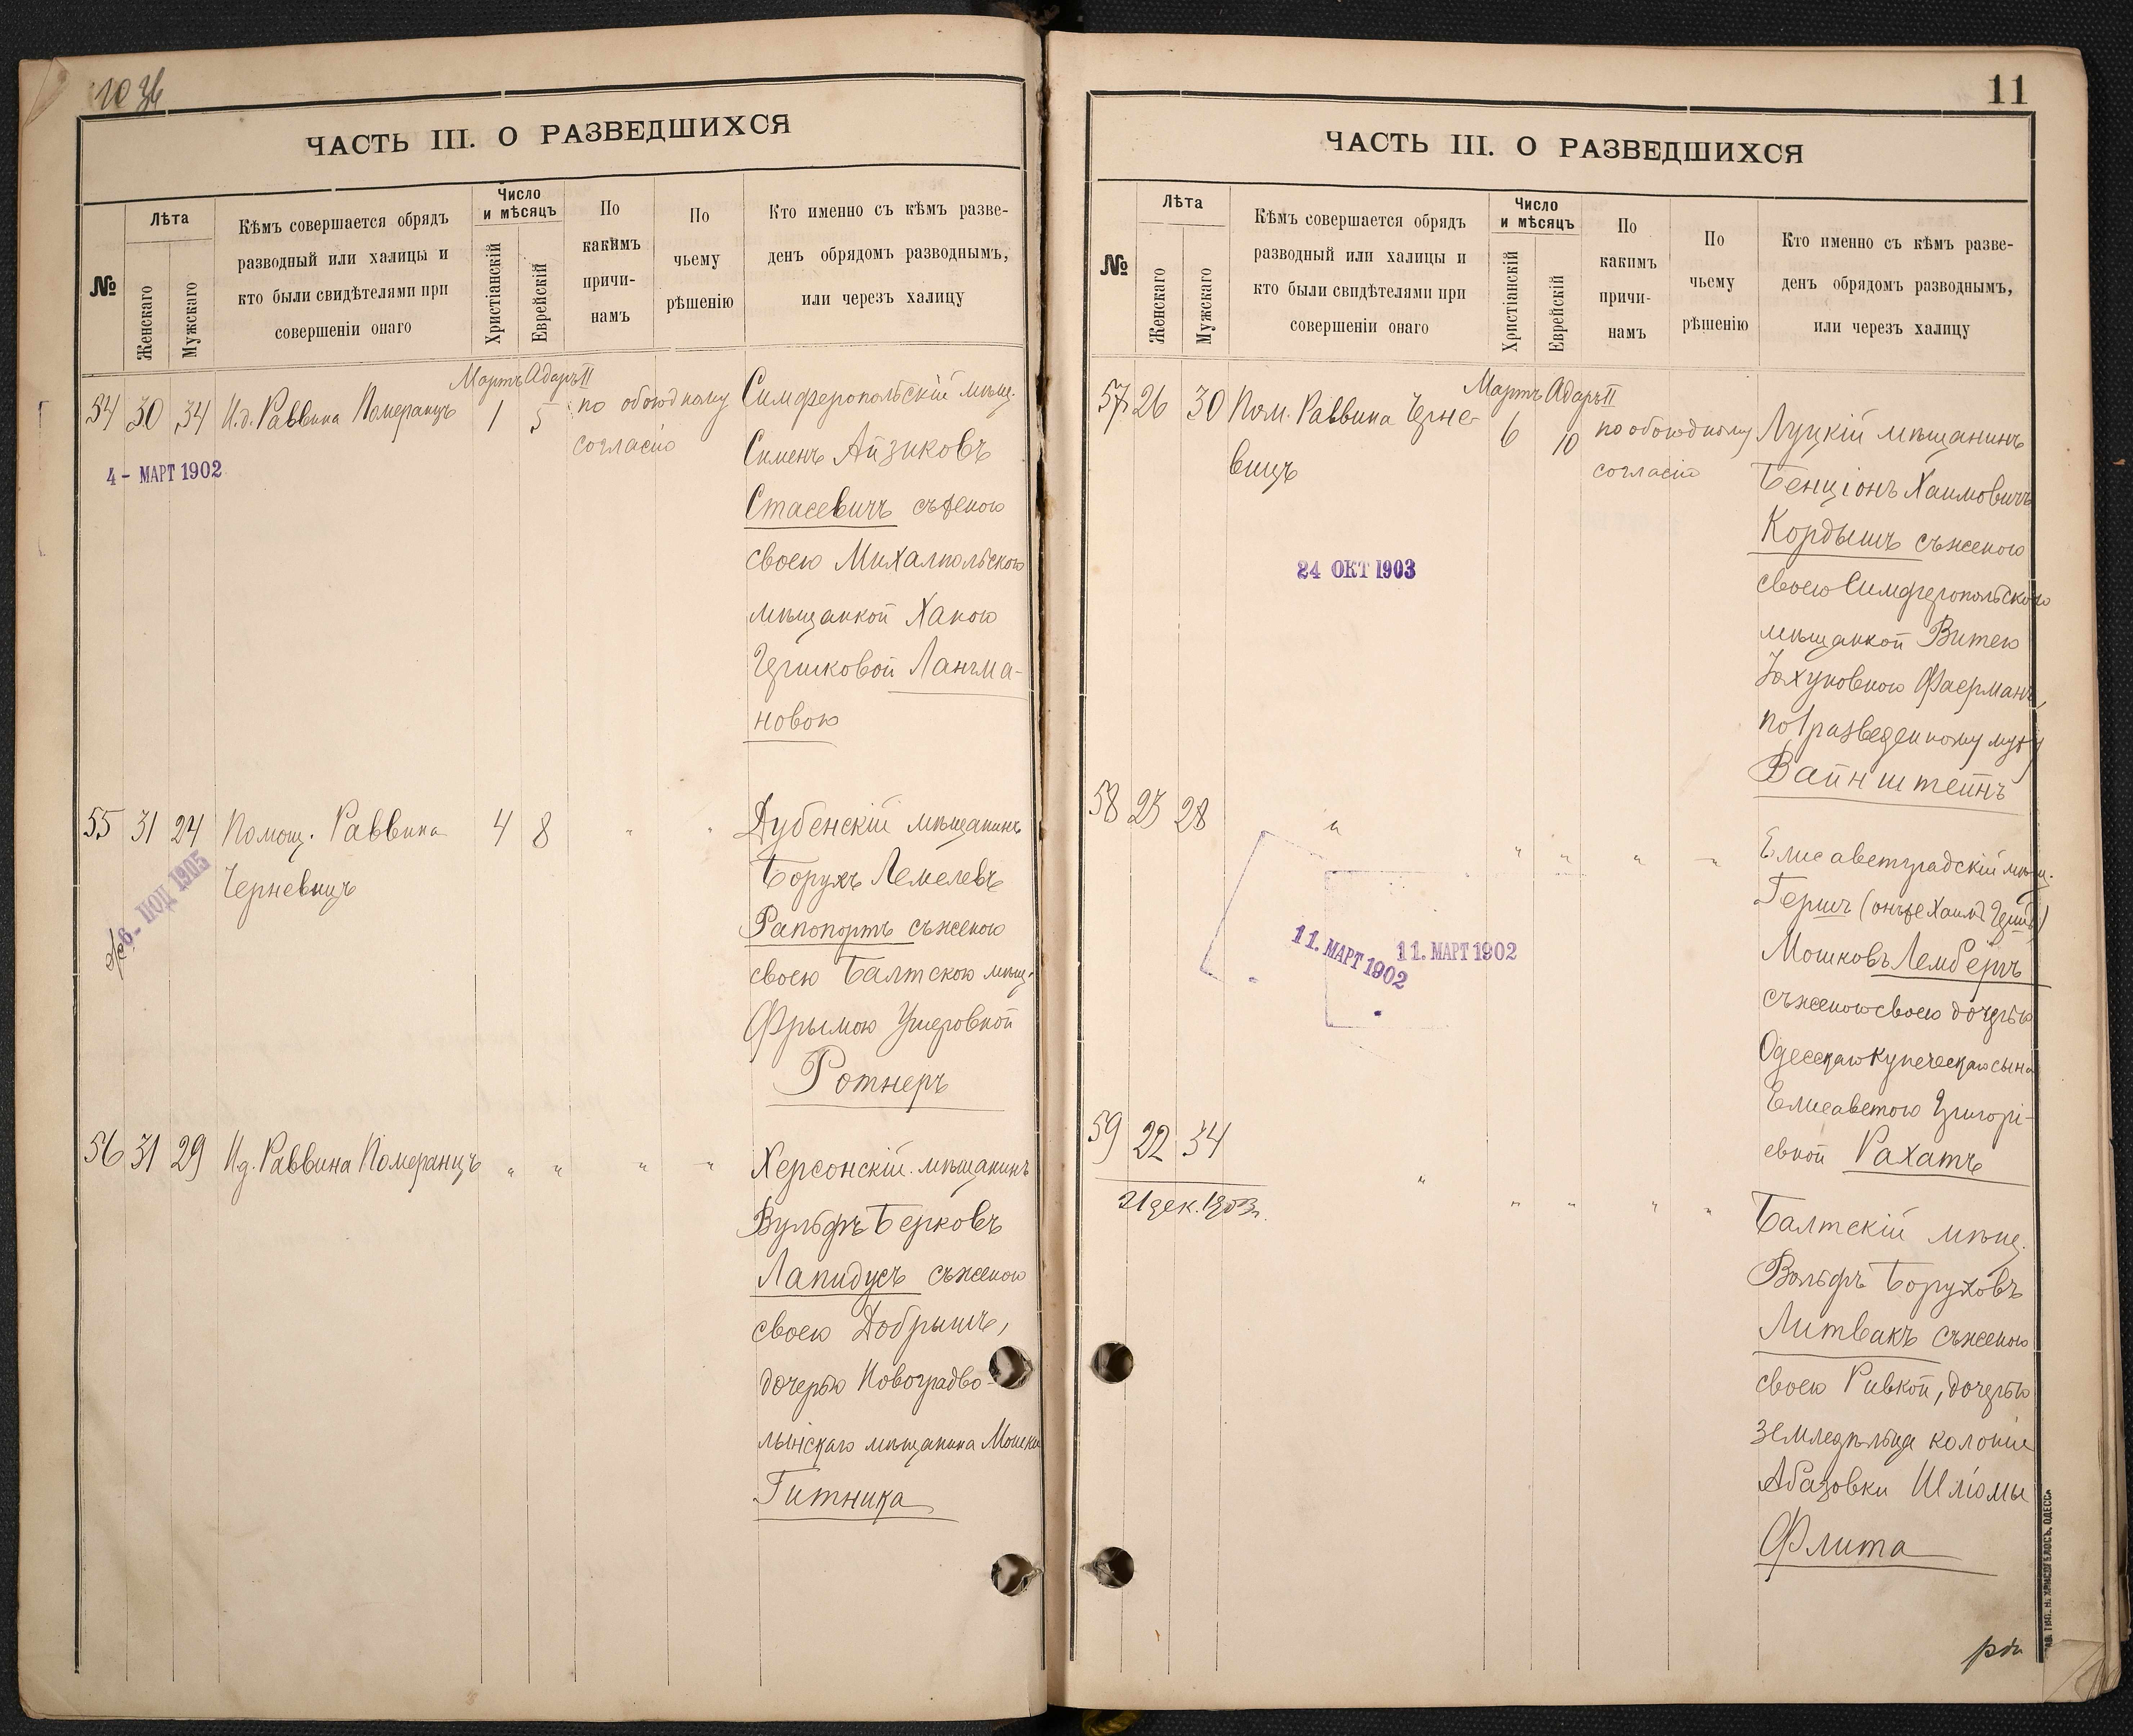 ЧАСТЬ III. О РАЗВЕДШИХСЯ
№
Лѣта
Женскаго
Мужскаго
Кѣмъ совершается обрядъ
разводный или халицы и
кто были свидѣтелями при
совершеніи онаго
Число
и мѣсяцъ
Христіанскій
Еврейскій
По
какимъ
причи-
намъ
По
чьему
рѣшенію
Кто именно съ кѣмъ разве-
денъ обрядомъ разводнымъ,
или черезъ халицу
Мартъ Адаръ II
54 30 34 И.д. Раввина Померанцъ 1 5 по обоюдному
согласію
4 - МАРТ 1902
Симферопольскій мѣщ.
Сименъ Айзиковъ
Стасевичъ съ женою
своею Михалпольскою
мѣщанкой Ханою
Гершковой Лангма-
новою
55 31 24 Помощ. Раввина 4 8 " "
Черневицъ
6 - 1905
Дубенскій мѣщанинъ
Борухъ Лемелевъ
Рапопортъ съ женою
своею Балтскою мѣщ.
Фрымою Ушеровной
Ротнеръ
56 31 29 И.д. Раввина Померанцъ " " " "
Херсонскій мѣщанинъ
Вульфъ Берковъ
Лапидусъ съ женою
своею Добрышъ,
дочерью Новоградво-
лынскаго мѣщанина Мошки
Гитника
11
ЧАСТЬ III. О РАЗВЕДШИХСЯ
№
Лѣта
Женскаго
Мужскаго
Кѣмъ совершается обрядъ
разводный или халицы и
кто были свидѣтелями при
совершеніи онаго
Число
и мѣсяцъ
Христіанскій
Еврейскій
По
какимъ
причи-
намъ
По
чьему
рѣшенію
Кто именно съ кѣмъ разве-
денъ обрядомъ разводнымъ,
или черезъ халицу
Мартъ Адаръ II
57 26 30 Пом. Раввина Черне- 6 10 по обоюдному
вицъ согласію
24 ОКТ 1903
Луцкій мѣщанинъ
Бенціонъ Хаимовичъ
Кордышъ съ женою
своею Симферопольскою
мѣщанкой Витею
Фаерманъ,
по 1 разведенному мужу
Вайнштейнъ
58 23 28 " " " " "
11. МАРТ 1902
11. МАРТ 1902
Елисаветградскій мѣщ.
Гершъ (онъ же Хаимъ Гершъ)
Мошковъ Лембергъ
съ женою своею дочерью
Одесскаго купеческаго сына
Елисаветою Григорі-
евной Рахатъ
59 22 34 " " " " "
21 дек. 1903 г.
Балтскій мѣщ.
Вольфъ Боруховъ
Литвакъ съ женою
своею Ривкой, дочерью
земледѣльца колоніи
Абазовки Шлёмы
Флита